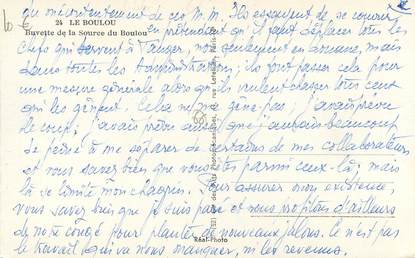 du mécontentement de ces M.M. Ils essayent de se couvrir
24 LE BOULOU
Buvette de la Source du Boulou
en prétendant qu'il faut déplacer tous les
Chefs qui servent à Tanger, non seulement en douane, mais
dans toutes les administrations; ils font passer cela pour
une mesure générale alors qu'ils veulent chasser tous ceux
qui les gênent. Cela ne me gêne pas; j'avais prévu
le coup; j'avais prévu aussi que j'aurais beaucoup
de peine à me séparer de certains de mes collaborateurs
et vous savez bien que vous êtes parmi ceux-là; mais
là se limite mon chagrin. Pour assurer mon existence,
vous savez bien que je suis paré et nous profitons d'ailleurs
de notre congé pour planter de nouveaux jalons. Ce n'est pas
le travail qui va nous manquer, ni les revenus.
Réal-Photo